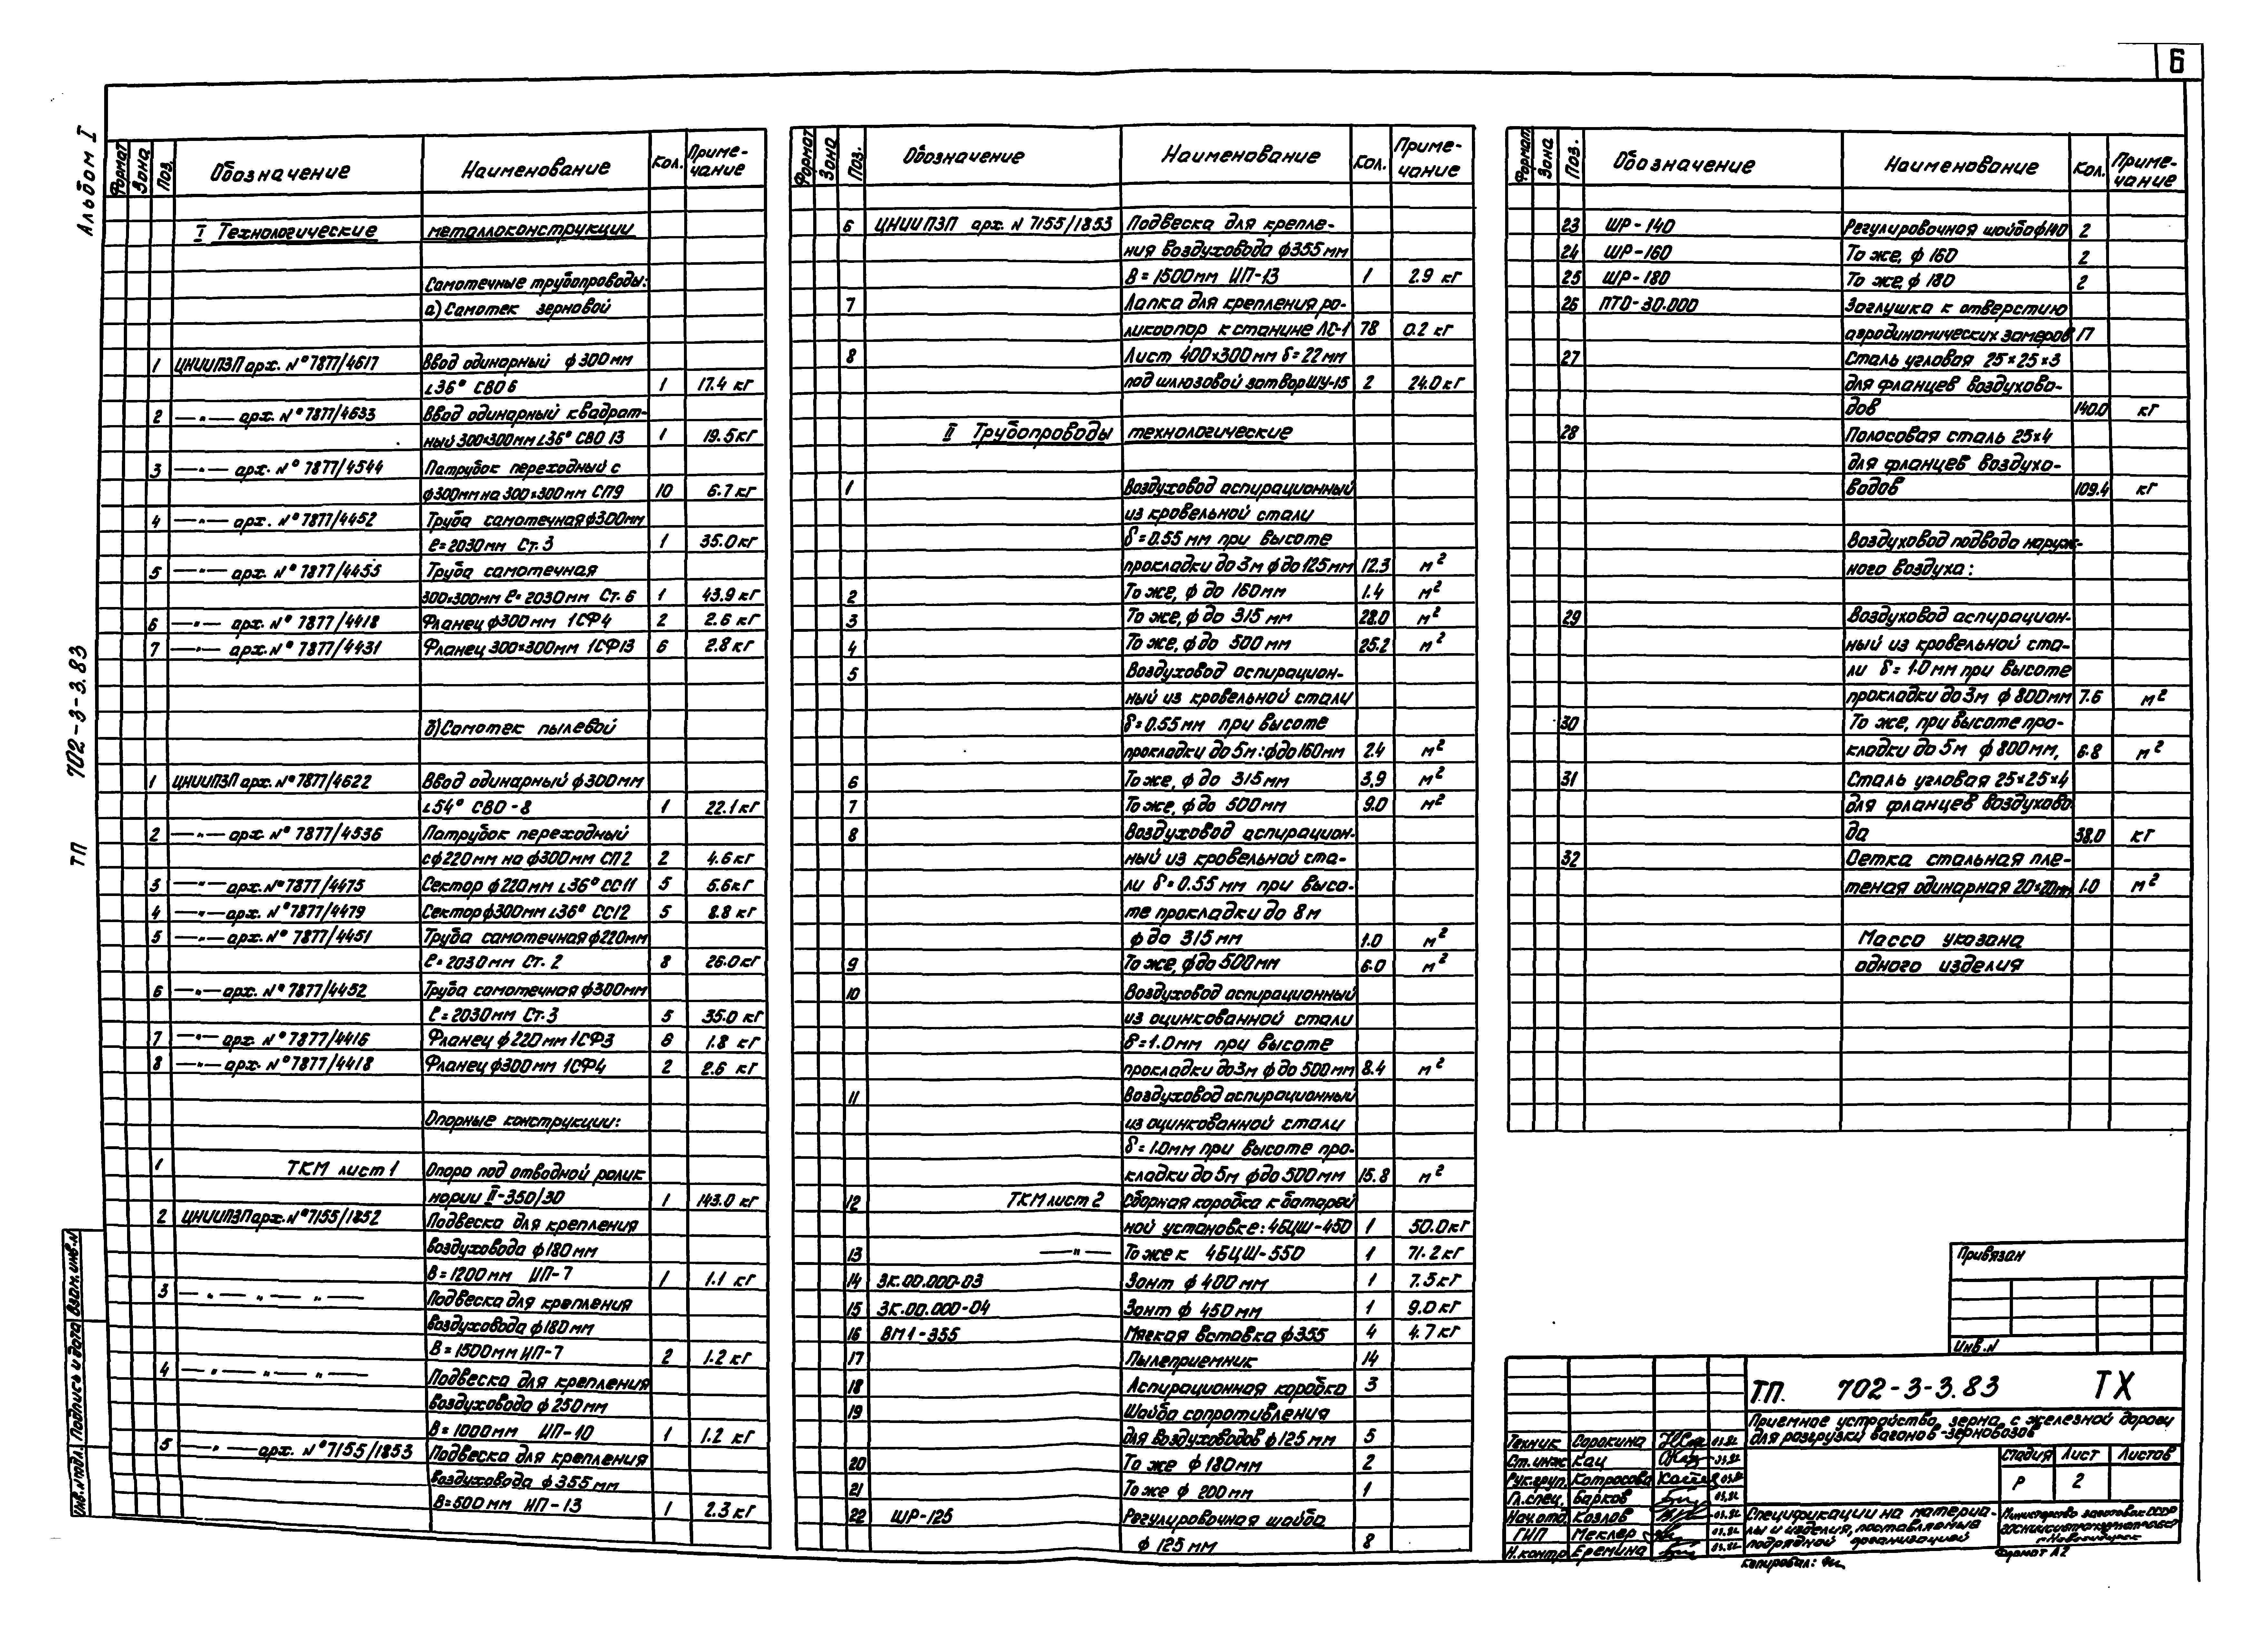 6
Альбом I
ТП 702-3-3.83
Формат Зона Поз. Обозначение Наименование Кол. Приме-чание
I Технологические металлоконструкции
Самотечные трубопроводы:
а) Самотек зерновой
1 ЦНИИПЗП арх. №7877/4617 Ввод одинарный ф300мм
∠36° СВО6 1 17.4 кг
2 —"— арх. №7877/4633 Ввод одинарный квадрат-
ный 300×300мм ∠36° СВО 13 1 19.5кг
3 —"— арх. №7877/4544 Патрубок переходный с
ф300мм на 300×300мм СП9 10 6.7 кг
4 —"— арх. №7877/4452 Труба самотечная ф300мм
ℓ=2030мм Ст.3 1 35.0кг
5 —"— арх. №7877/4455 Труба самотечная
300×300мм ℓ=2030мм Ст.6 1 43.9 кг
6 —"— арх. №7877/4418 Фланец ф300мм 1СФ4 2 2.6 кг
7 —"— арх. №7877/4431 Фланец 300×300мм 1СФ13 6 2.8 кг
б) Самотек пылевой
1 ЦНИИПЗП арх. №7877/4622 Ввод одинарный ф300мм
∠54° СВО-8 1 22.1кг
2 —"— арх. №7877/4536 Патрубок переходный
с ф220мм на ф300мм СП2 2 4.6 кг
3 —"— арх. №7877/4475 Сектор ф220мм ∠36° СС11 5 5.6кг
4 —"— арх. №7877/4479 Сектор ф300мм ∠36° СС12 5 8.8 кг
5 —"— арх. №7877/4451 Труба самотечная ф220мм
ℓ=2030мм Ст.2 8 26.0кг
6 —"— арх. №7877/4452 Труба самотечная ф300мм
ℓ=2030мм Ст.3 5 35.0 кг
7 —"— арх. №7877/4416 Фланец ф220мм 1СФ3 8 1.8 кг
8 —"— арх. №7877/4418 Фланец ф300мм 1СФ4 2 2.6 кг
Опорные конструкции:
1 ТКМ лист 1 Опора под отводной ролик
нории II-350/30 1 143.0 кг
2 ЦНИИПЗП арх. №7155/1852 Подвеска для крепления
воздуховода ф180мм
В=1200мм ИП-7 1 1.1 кг
3 —"—"—"— Подвеска для крепления
воздуховода ф180мм
В=1500мм ИП-7 2 1.2 кг
4 —"—"—"— Подвеска для крепления
воздуховода ф250мм
В=1000мм ИП-10 1 1.2 кг
5 —"— арх. №7155/1853 Подвеска для крепления
воздуховода ф355мм
В=500мм ИП-13 1 2.3 кг
Формат Зона Поз. Обозначение Наименование Кол. Приме-чание
6 ЦНИИПЗП арх. N 7155/1853 Подвеска для крепле-
ния воздуховода ф355мм
В=1500мм ИП-13 1 2.9 кг
7 Лапка для крепления ро-
ликоопор к станине ЛС-1 78 0.2 кг
8 Лист 400×300мм δ=22мм
под шлюзовой затвор ШУ-15 2 24.0кг
II Трубопроводы технологические
1 Воздуховод аспирационный
из кровельной стали
δ=0.55 мм при высоте
прокладки до 3м ф до 125мм 12.3 м²
2 То же, ф до 160мм 1.4 м²
3 То же, ф до 315 мм 28.0 м²
4 То же, ф до 500мм 25.2 м²
5 Воздуховод аспирацион-
ный из кровельной стали
δ=0.55мм при высоте
прокладки до 5м: ф до 160мм 2.4 м²
6 То же, ф до 315мм 3,9 м²
7 То же, ф до 500мм 9.0 м²
8 Воздуховод аспирацион-
ный из кровельной ста-
ли δ=0.55 мм при высо-
те прокладки до 8м
ф до 315мм 1.0 м²
9 То же, ф до 500мм 6.0 м²
10 Воздуховод аспирационный
из оцинкованной стали
δ=1.0мм при высоте
прокладки до 3м ф до 500мм 8.4 м²
11 Воздуховод аспирационный
из оцинкованной стали
δ=1.0мм при высоте про-
кладки до 5м ф до 500мм 15.8 м²
12 ТКМ лист 2 Сборная коробка к батарей
ной установке: 4БЦШ-450 1 50.0кг
13 —"— То же к 4БЦШ-550 1 71.2кг
14 ЗК.00.000-03 Зонт ф400мм 1 7.5кг
15 ЗК.00.000-04 Зонт ф 450мм 1 9.0 кг
16 ВМ1-355 Мягкая вставка ф355 4 4.7 кг
17 Пылеприемник 14
18 Аспирационная коробка 3
19 Шайба сопротивления
для воздуховодов ф125мм 5
20 То же ф 180мм 2
21 То же ф 200мм 1
22 ШР-125 Регулировочная шайба
ф 125мм 8
Формат Зона Поз. Обозначение Наименование Кол. Приме-чание
23 ШР-140 Регулировочная шайба ф140 2
24 ШР-160 То же, ф 160 2
25 ШР-180 То же, ф 180 2
26 ПТО-30.000 Заглушка к отверстию
аэродинамических замеров 17
27 Сталь угловая 25×25×3
для фланцев воздухово-
дов 140.0 кг
28 Полосовая сталь 25×4
для фланцев воздухо-
водов 109.4 кг
Воздуховод подвода наруж-
ного воздуха:
29 Воздуховод аспирацион-
ный из кровельной ста-
ли δ=1.0мм при высоте
прокладки до 3м ф 800мм 7.6 м²
30 То же, при высоте про-
кладки до 5м ф 800мм, 6.8 м²
31 Сталь угловая 25×25×4
для фланцев воздухово
да 38.0 кг
32 Сетка стальная пле-
теная одинарная 20×20мм 1.0 м²
Масса указана
одного изделия
Привязан
Инв.N
Т.П. 702-3-3.83 ТХ
Приемное устройство зерна с железной дороги
для разгрузки вагонов-зерновозов
Техник Сорокина 03.82
Ст.инж. Кац 03.82
Рук.груп. Катросова 03.82
Гл.спец. Барков 03.82
Нач.отд. Козлов 03.82
ГИП Меклер 03.82
Н.контр. Еремина 03.82
Стадия Лист Листов
Р 2
Спецификации на материа-
лы и изделия, поставляемые
подрядной организацией
Министерство заготовок СССР
г.Новосибирск
Копировал:
Формат А2
Инв.№ подл. Подпись и дата Взам.инв.N